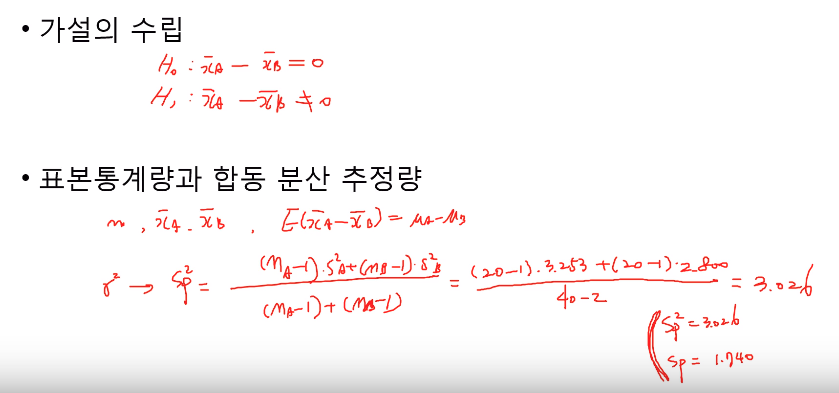 • 가설의 수립
H₀ : x̄A − x̄B = 0
H₁ : x̄A − x̄B ≠ 0
• 표본통계량과 합동 분산 추정량
n , x̄A . x̄B , E(x̄A − x̄B) = μA − μB
σ² → Sp² = ((nA−1)·S²A + (nB−1)·S²B) / ((nA−1) + (nB−1)) = ((20−1)·3.253 + (20−1)·2.800) / (40−2) = 3.026
Sp² = 3.026
Sp = 1.740